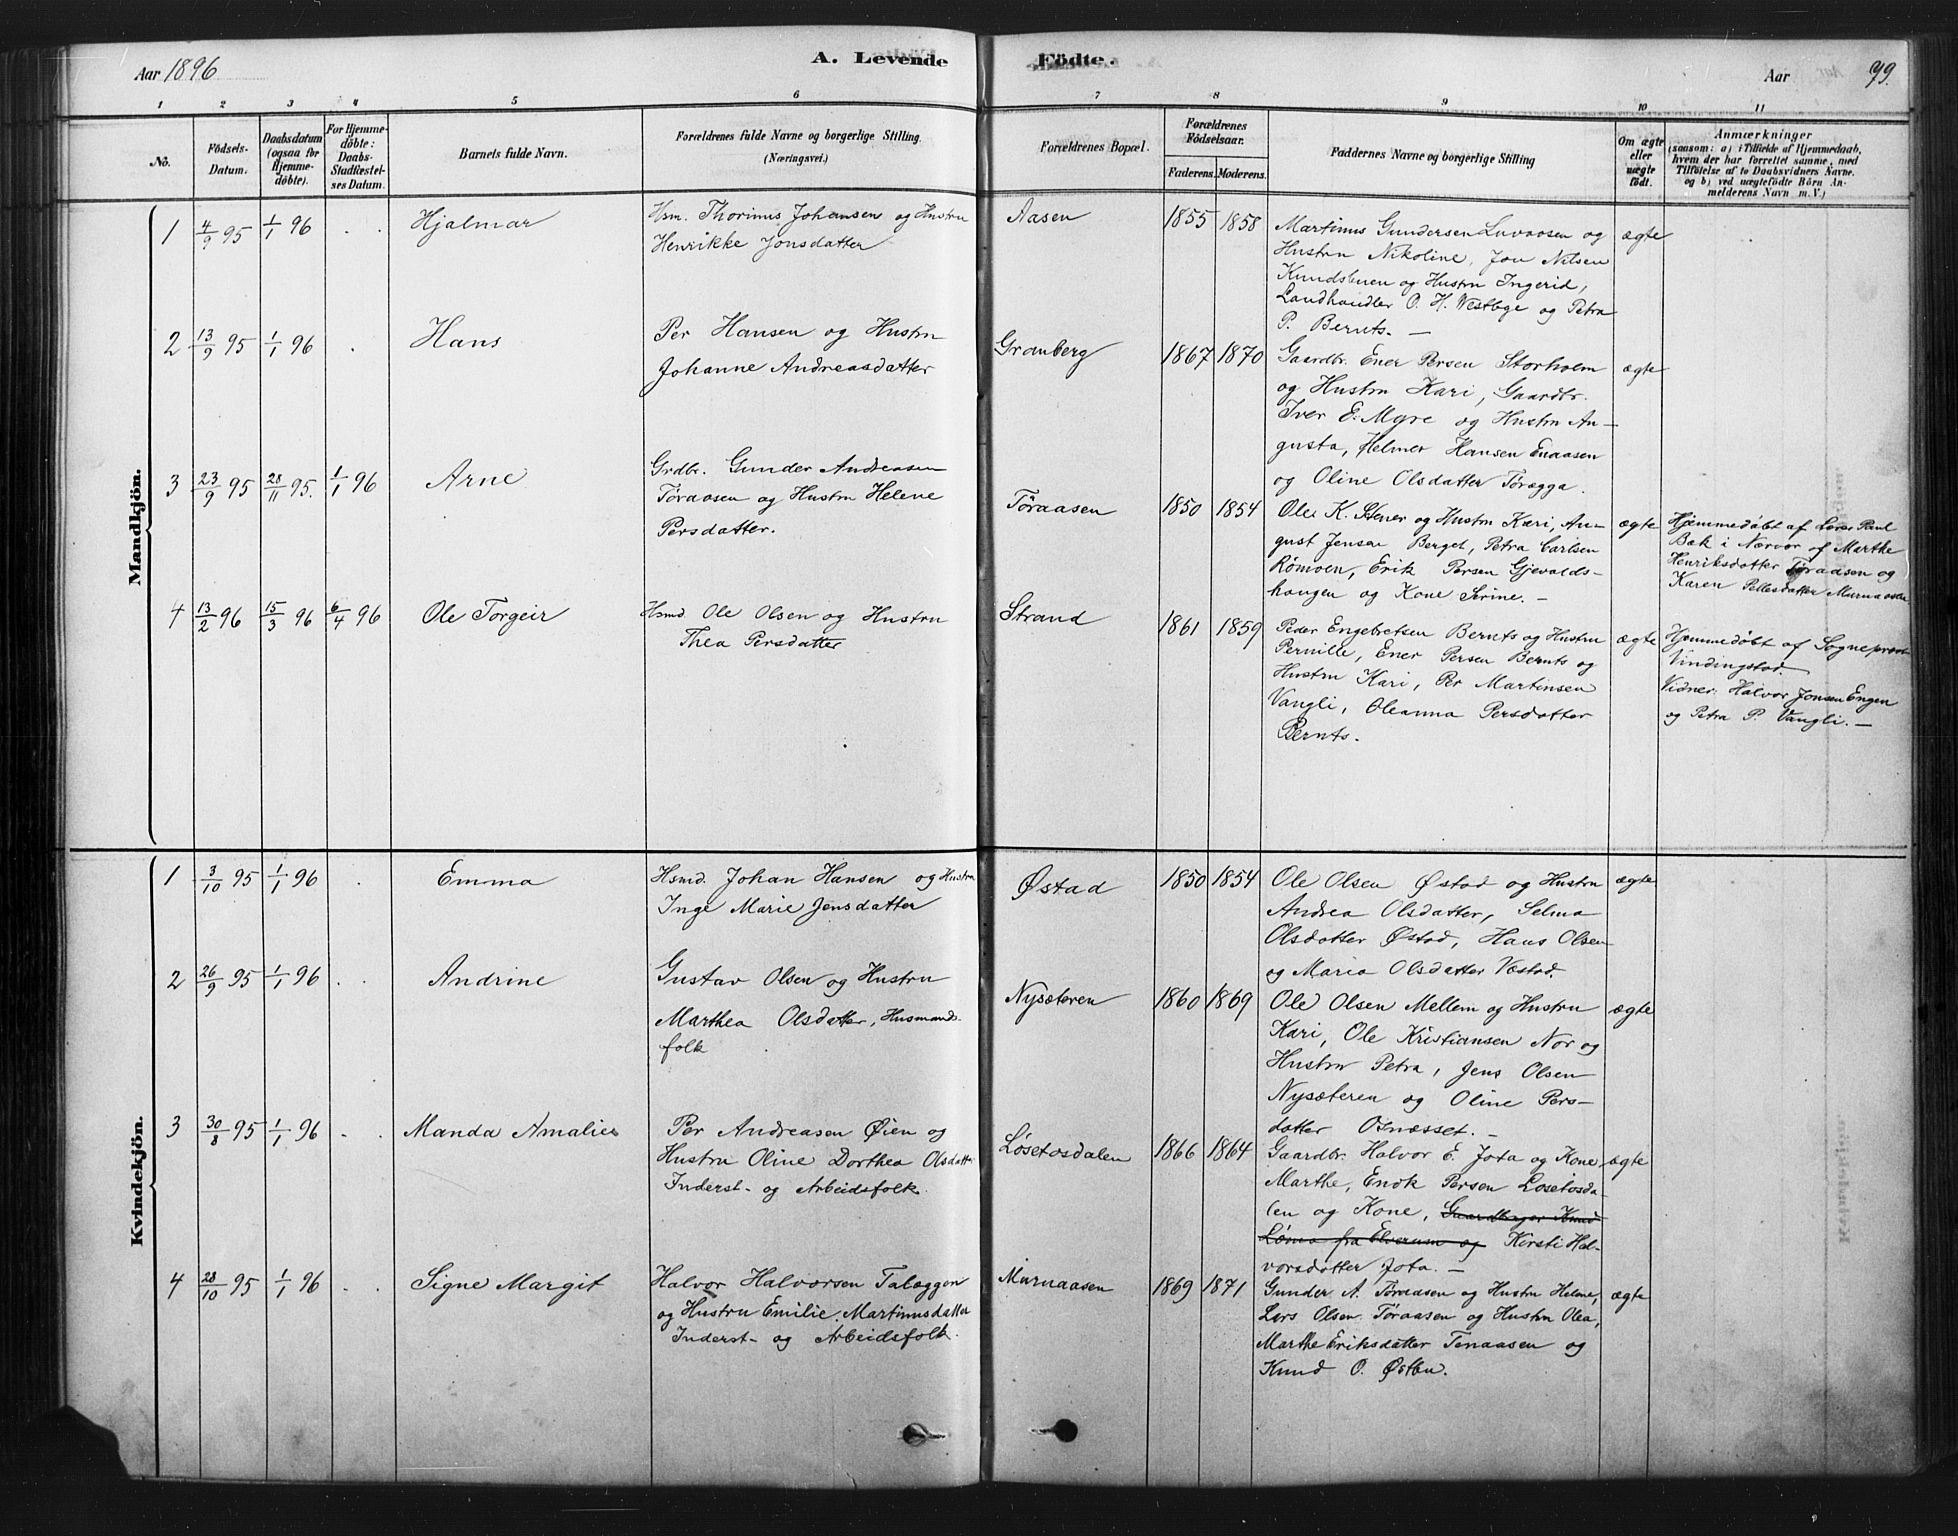 Aar 1896
A. Levende
Födte.
Aar
79.
1 2 3 4 5 6 7 8 9 10 11
No.
Födsels-
Datum.
Daabsdatum
(ogsaa for
Hjemme-
döbte).
For Hjemme-
döbte:
Daabs-
Stadfæstel-
ses Datum.
Barnets fulde Navn.
Forældrenes fulde Navne og borgerlige Stilling
(Næringsvei.)
Forældrenes Bopæl.
Forældrenes
Födselsaar.
Faderens. Moderens.
Faddernes Navne og borgerlige Stilling
Om ægte
eller
uægte
födt.
Anmærkninger
(saasom: a) i Tilfælde af Hjemmedaab,
hvem der har forrettet samme, med
Tilföielse af to Daabsvidners Navne.
og b) ved uægtefödte Börn An-
melderens Navn m. V.)
Mandkjön.
1 4/9 95 1/1 96 . . Hjalmar
Hsm. Thorinus Johansen og Hustru
Henrikke Jonsdatter
Aasen 1855 1858
Martinus Gundersen Luvaasen og
Hustru Nikoline, Jon Nilsen
Knudsbuen og Hustru Ingerid,
Landhandler O. H. Vestbye og Petra
P. Bernts. —
ægte
2 13/9 95 1/1 96 . Hans
Per Hansen og Hustru
Johanne Andreasdatter
Granberg 1867 1870
Gaardbr. Ener Persen Storholm
og Hustru Kari, Gaardbr.
Iver E. Myre og Hustru Au-
gusta, Helmer Hansen Enaasen
og Oline Olsdatter Töregga.
ægte
3 23/9 95 28/11 95. 1/1 96 Arne
Grdbr. Gunder Andreasen
Töraasen og Hustru Helene
Persdatter.
Töraasen 1850 1854
Ole K. Stener og Hustru Kari, Au-
gust Jensen Berget, Petra Carlsen
Römoen, Erik Persen Gjevalds-
haugen og Kone Serine. —
ægte
Hjemmedöbt af Lærer Paul
Bæk i Nærvær af Marthe
Henriksdatter Töraasen og
Karen Pellesdatter Murnaasen
4 13/2 96 15/3 96 6/4 96 Ole Torgeir
Hsmd. Ole Olsen og Hustru
Thea Persdatter
Strand 1861 1859
Peder Engebretsen Bernts og Hustru
Pernille, Ener Persen Bernts og
Hustru Kari, Per Martinsen
Vangli, Oleanna Persdatter
Bernts.
ægte
Hjemmedöbt af Sognepræst
Vindingstad.
Vidner: Halvor Jonsen Engen
og Petra P. Vangli. —
Kvindekjön.
1 3/10 95 1/1 96 . Emma
Hsmd. Johan Hansen og Hustru
Inge Marie Jensdatter
Østad 1850 1854
Ole Olsen Østad og Hustru
Andrea Olsdatter, Selma
Olsdatter Østad, Hans Olsen
og Maria Olsdatter Væstad.
ægte
2 26/9 95 1/1 96 . . Andrine
Gustav Olsen og Hustru
Marthea Olsdatter, Husmands-
folk
Nysæteren 1860 1869
Ole Olsen Mellem og Hustru
Kari, Ole Kristiansen Nor og
Hustru Petra, Jens Olsen
Nysæteren og Oline Pers-
datter Osnæsset. —
ægte
3 30/8 95 1/1 96 . . Manda Amalie
Per Andreasen Øien og
Hustru Oline Dorthea Olsdatter
Inderst- og Arbeidsfolk.
Løsetosdalen 1866 1864
Gaardbr. Halvor E. Jota og Kone
Marthe, Enok Persen Løsetosda-
len og Kone, Gaardbruger Knud
fra Elverum og Kirsti Hal-
vorsdatter Jota. —
ægte
4 28/10 95 1/1 96 . . Signe Margit
Halvor Halvorsen Talæggen
og Hustru Emilie Martinusdatter
Inderst- og Arbeidsfolk.
Murnaasen 1869 1871
Gunder A. Töraasen og Hustru Helene,
Lars Olsen Töraasen og Hustru Olea,
Marthe Eriksdatter Tenaasen og
Knud O. Østbu.
ægte